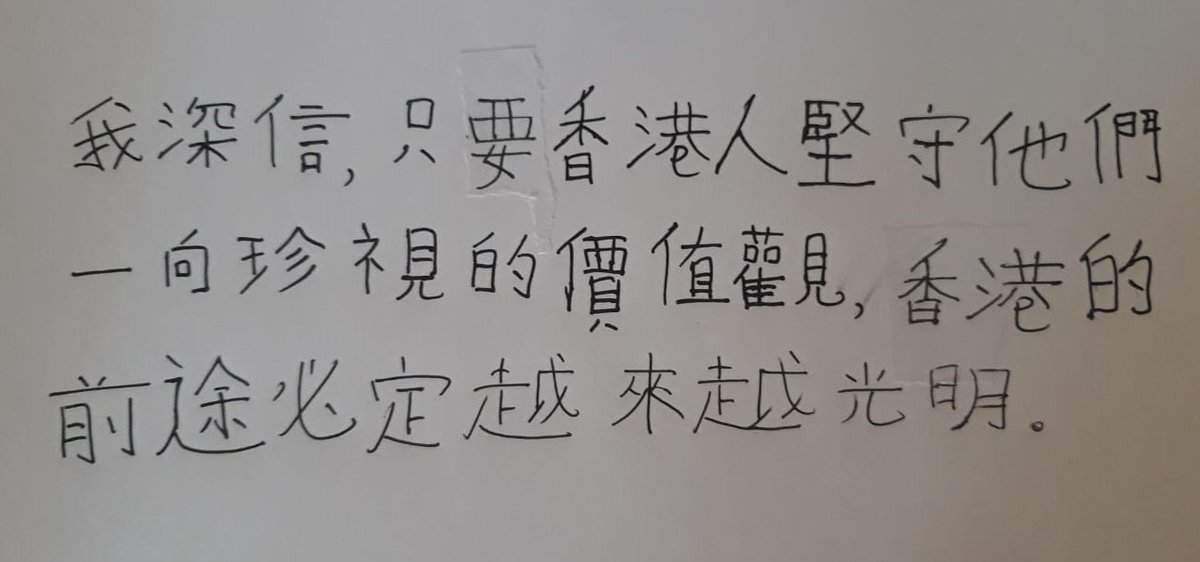 我深信,只要香港人堅守他們
一向珍視的價值觀,香港的
前途必定越來越光明。